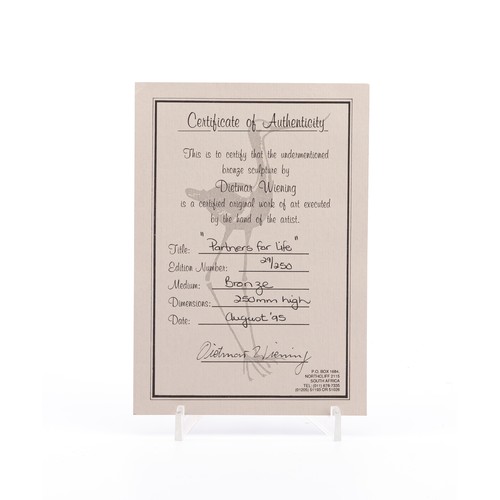 Certificate of Authenticity
This is to certify that the undermentioned
bronze sculpture by
Dietmar Wiening
is a certified original work of art executed
by the hand of the artist.
Title: "Partners for life"
Edition Number: 29/250
Medium: Bronze
Dimensions: 250mm high
Date: August '95
Dietmar Wiening
P.O. BOX 1684,
NORTHCLIFF 2115
SOUTH AFRICA